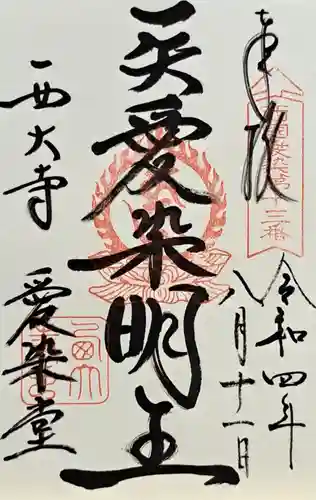 奉拝
令和四年
八月十一日
愛染明王
西大寺
愛染堂